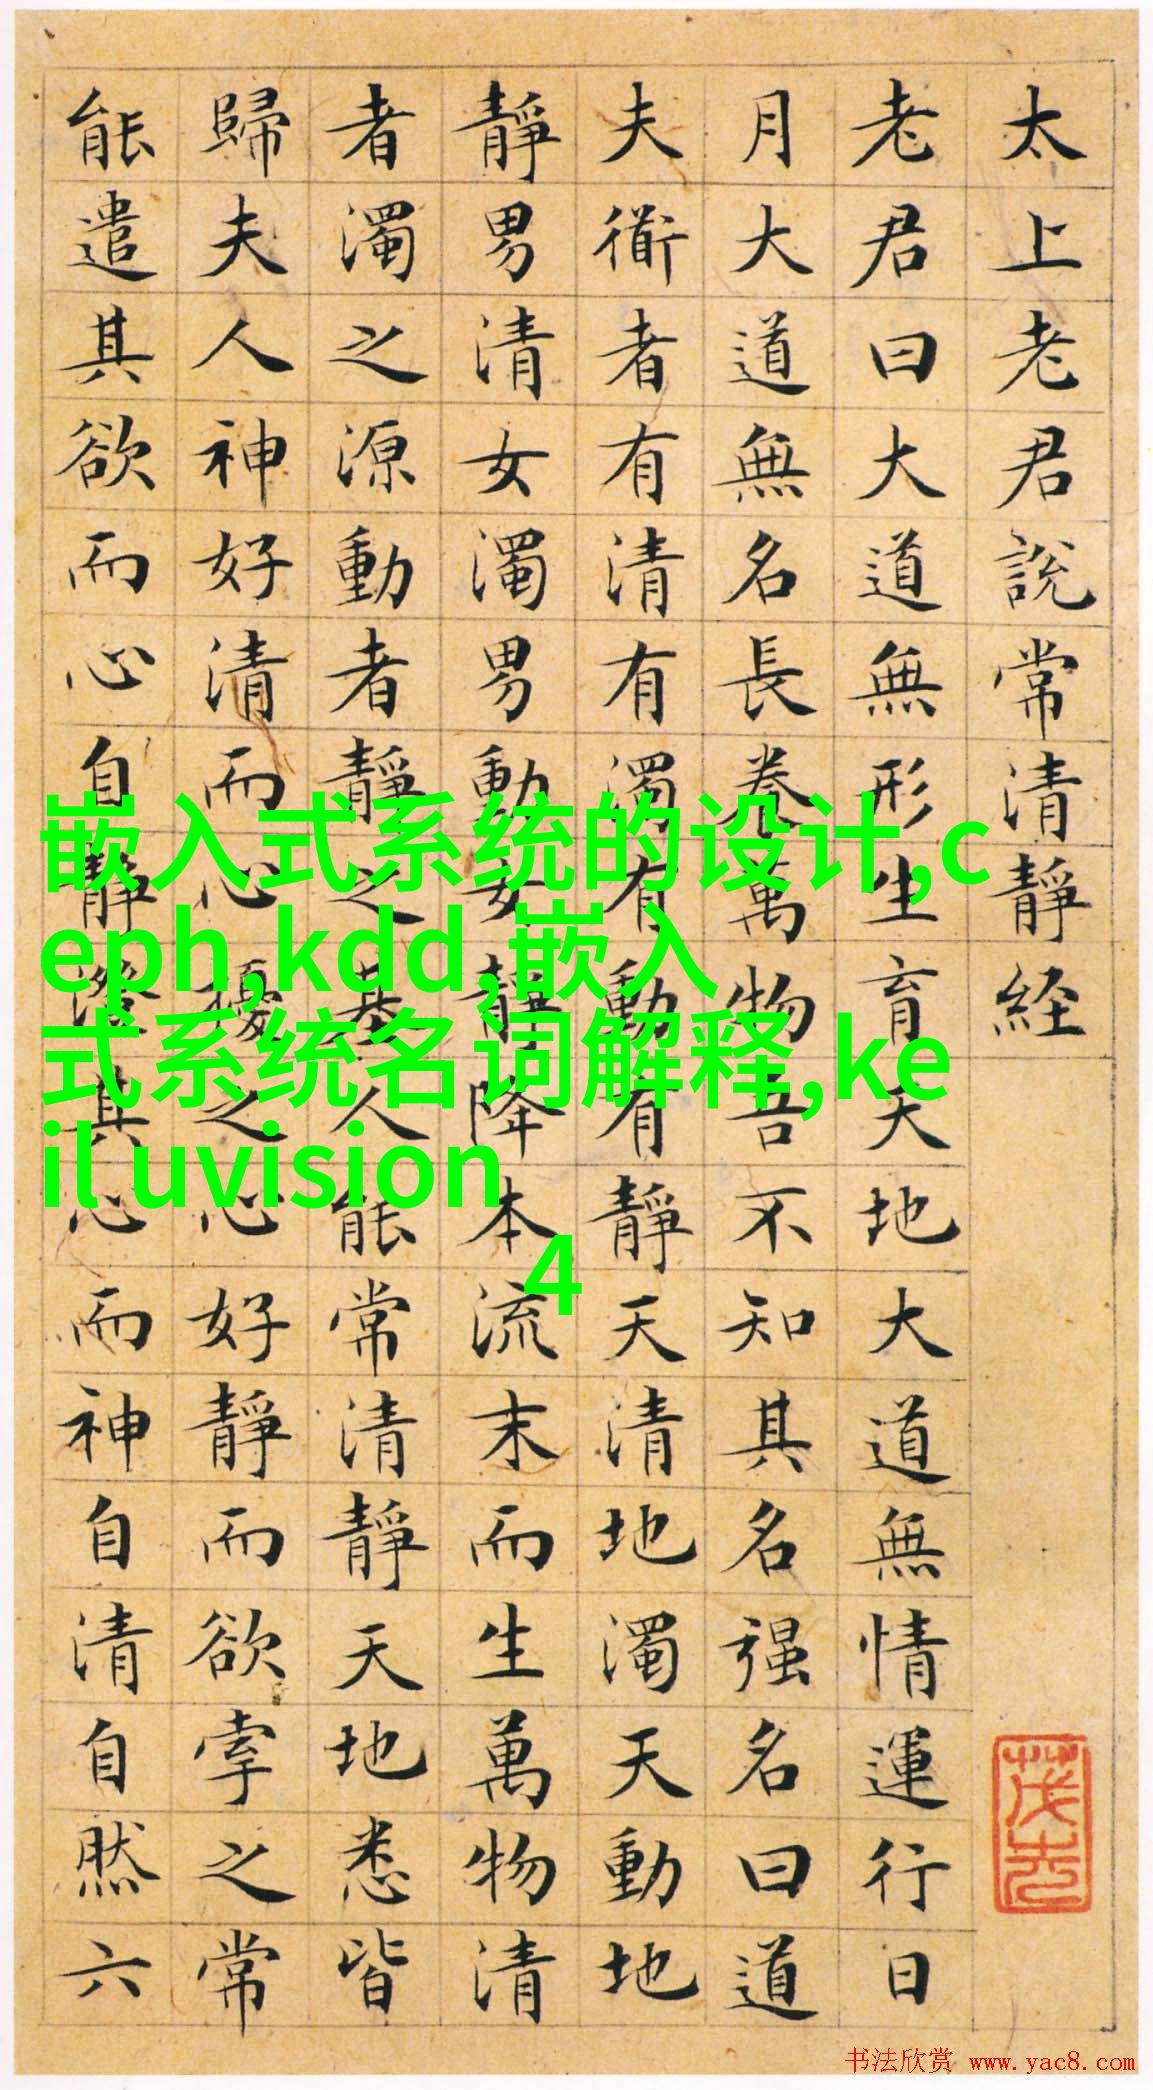 太上老君說常清靜経
老君曰大道無形生育天地大道無情運行日
月大道無名長養萬物吾不知其名强名曰道
夫衜者有清有濁有動有靜天清地濁天動地
靜男清女濁男動女靜降本流末而生萬物清
者濁之源動者靜之基人能常清靜天地悉皆
歸夫人神好清而心擾之心好靜而欲牽之常
能遣其欲而心自靜澄其心而神自清自然六
嵌入式系统的设计,c
eph,kdd,嵌入
式系统名词解释,ke
il uvision
4
书法欣赏 www.yac8.com